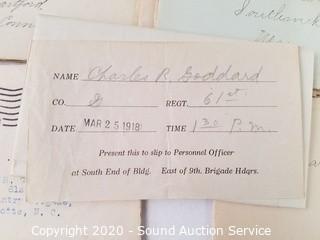 artford
Conn
Southwick
NAME Charles R. Goddard
CO. G REGT. 61st
DATE MAR 25 1918 TIME 1 30 P.m.
Present this to slip to Personnel Officer
at South End of Bldg. East of 9th. Brigade Hdqrs.
otte, N. C.
Copyright 2020 - Sound Auction Service